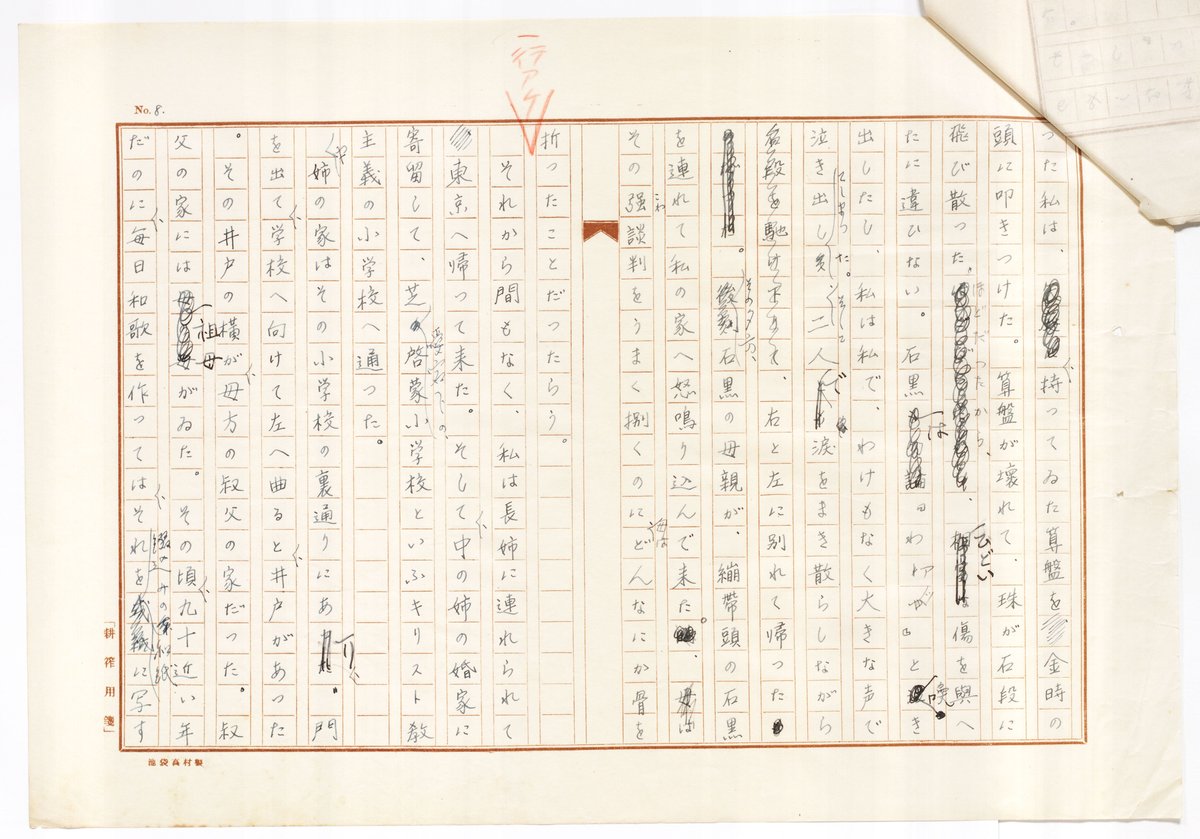 No. 8.
一行アケ
つた私は、持つてゐた算盤を金時の
頭に叩きつけた。算盤が壊れて、珠が石段に
飛び散つた。ほどだつたから、ひどい傷を與へ
たに違ひない。石黒はわわアッと喚き
出したし、私は私で、わけもなく大きな声で
泣き出してしまつた。そして二人で涙をまき散らしながら
石段を馳け下りて、右と左に別れて帰つた
。その夕方、石黒の母親が、繃帯頭の石黒
を連れて私の家へ怒鳴り込んで来た。母は
その强こわ談判をうまく捌くのにどんなにか骨を
折つたことだつたらう。
それから間もなく、私は長姉に連れられて
東京へ帰つて来た。そして中の姉の婚家に
寄留して、芝愛宕下の、啓蒙小学校といふキリスト教
主義の小学校へ通つた。
姉の家はその小学校の裏通りにあり、門
を出て学校へ向けて左へ曲ると井戸があつた
。その井戸の横が母方の叔父の家だつた。叔
父の家には祖母がゐた。その頃九十近い年
だのに毎日和歌を作つてはそれを綴込みの和紙に写す
「耕筰用箋」
池袋髙村製